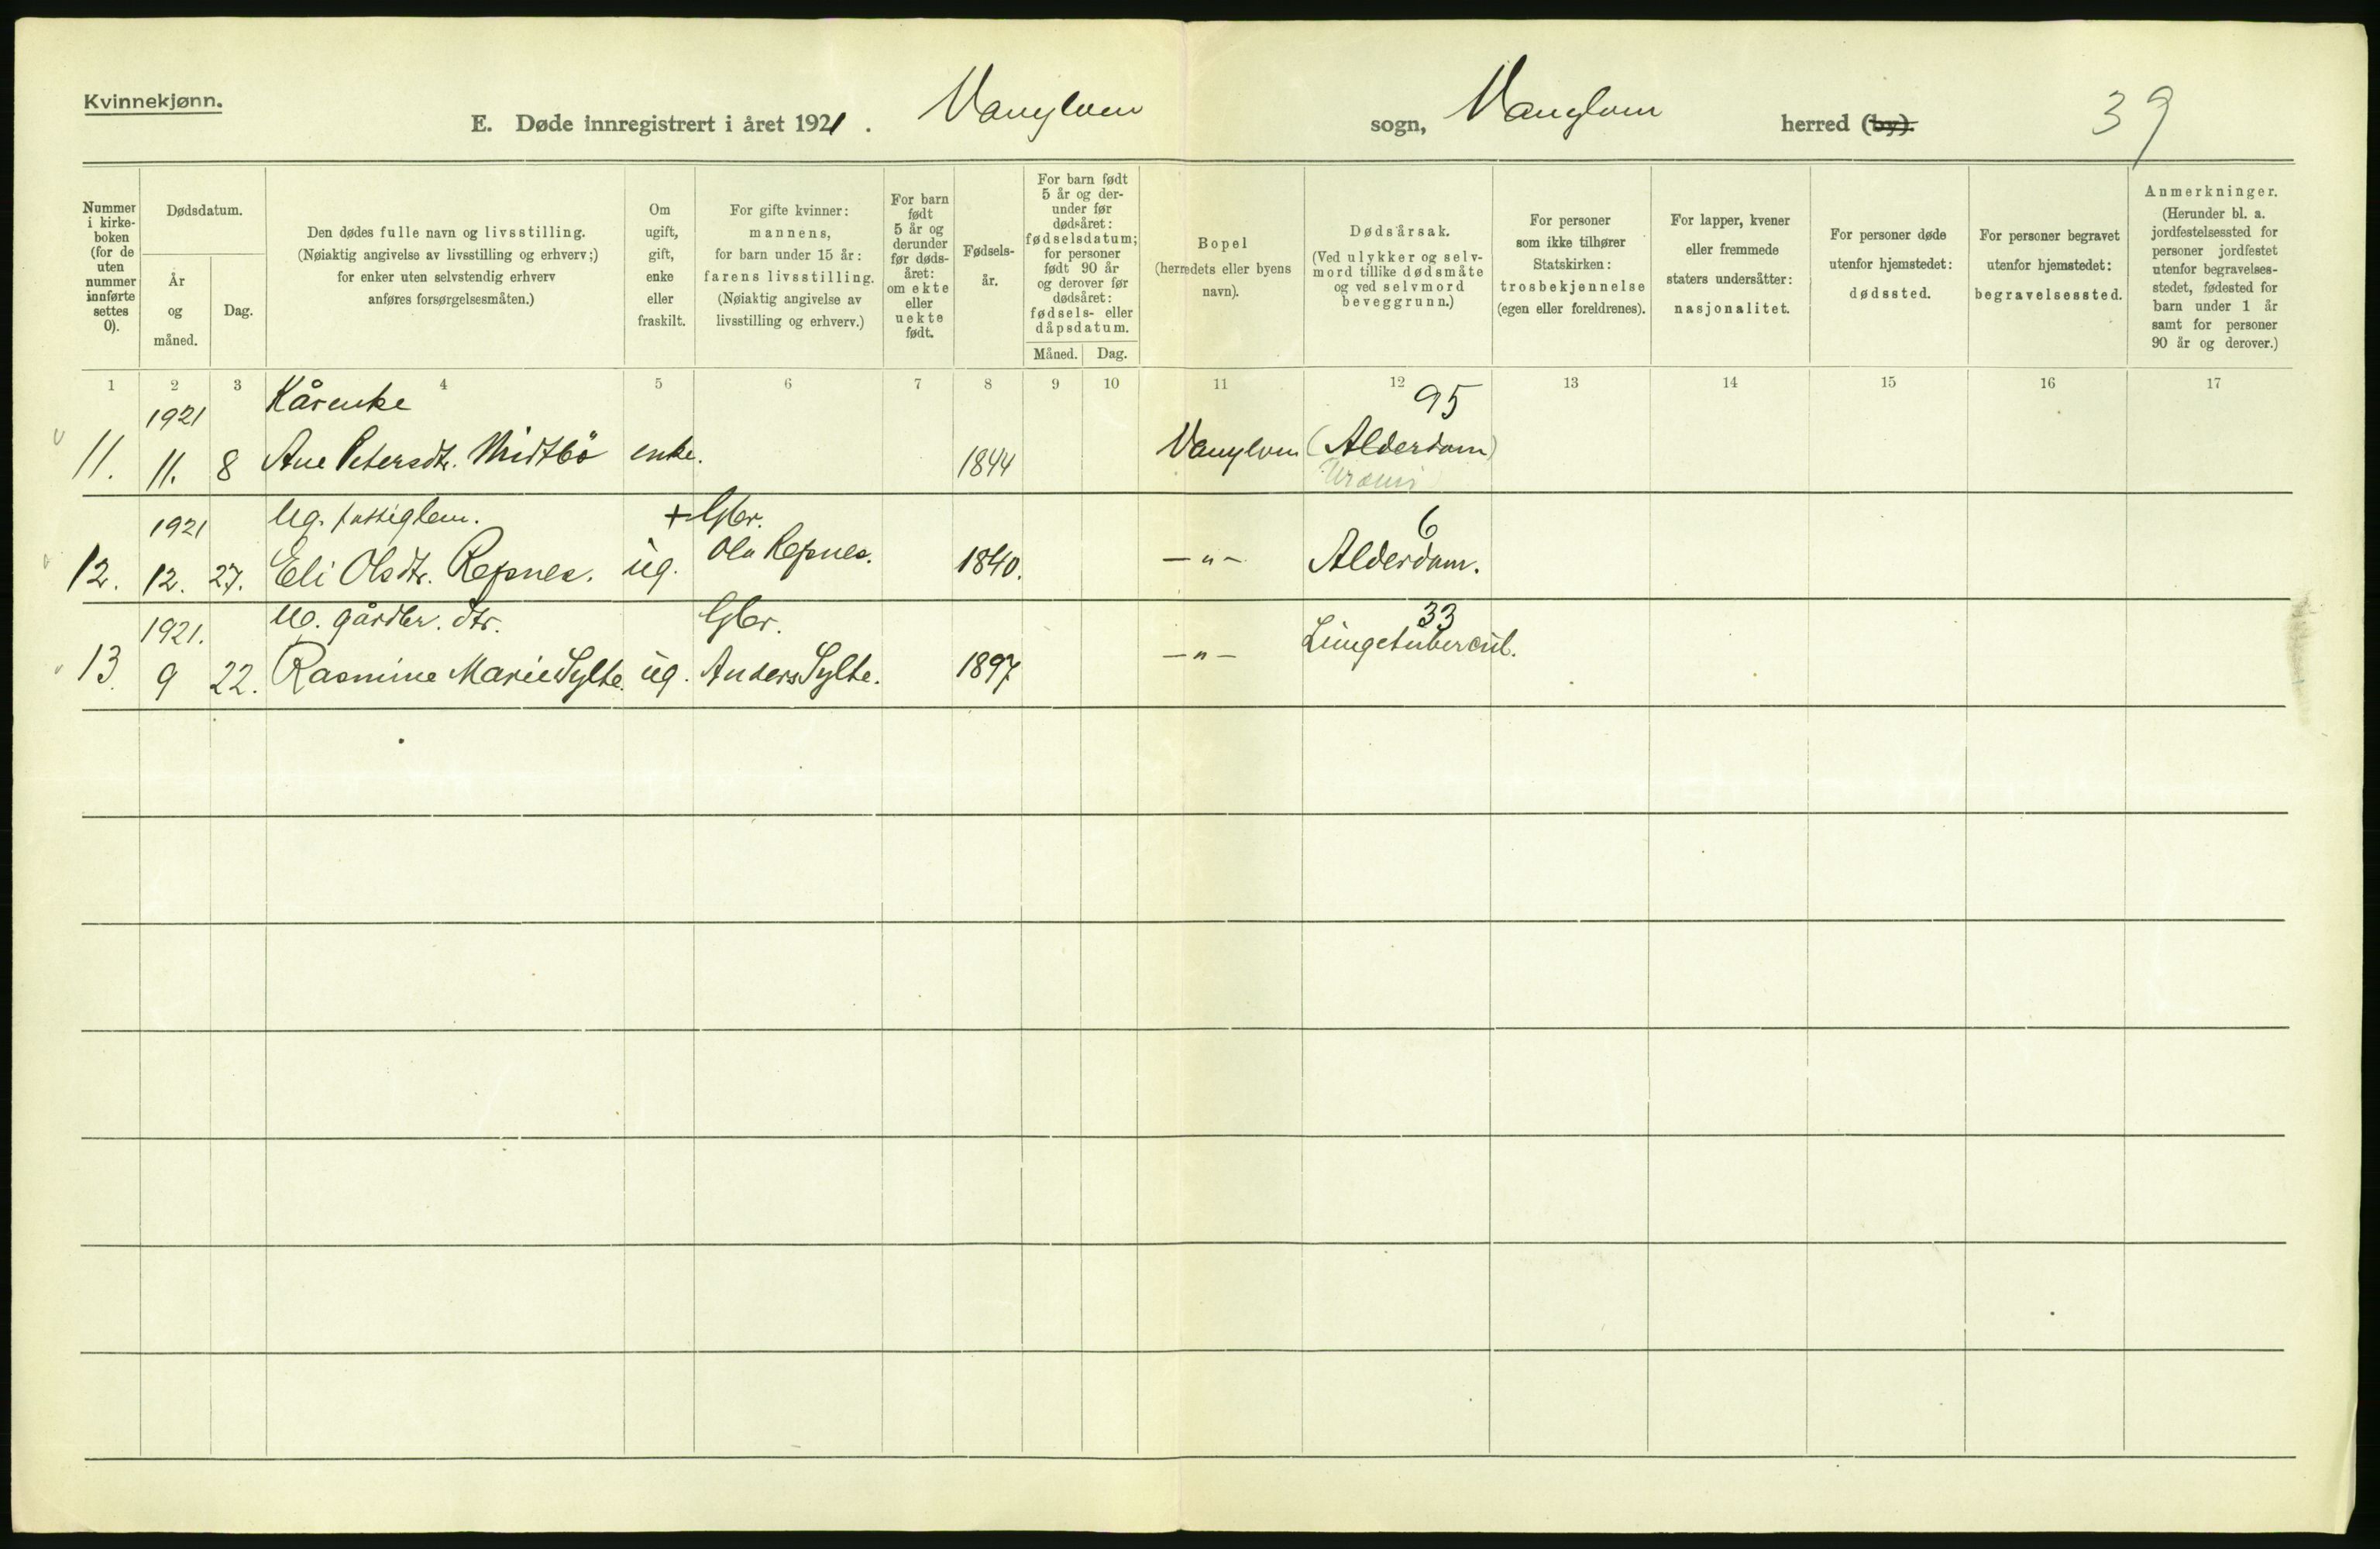 Kvinnekjønn.
E. Døde innregistrert i året 1921. Vanylven sogn, Vanylven herred (by). 39
Nummer i kirke-boken (for de uten nummer innførte settes 0).
Dødsdatum.
År og måned.
Dag.
Den dødes fulle navn og livsstilling.
(Nøiaktig angivelse av livsstilling og erhverv;)
for enker uten selvstendig erhverv
anføres forsørgelsesmåten.)
Om ugift, gift, enke eller fraskilt.
For gifte kvinner:
mannens,
for barn under 15 år:
farens livsstilling.
(Nøiaktig angivelse av
livsstilling og erhverv.)
For barn født 5 år og derunder før døds-året: om ekte eller uekte født.
Fødsels-år.
For barn født 5 år og der-under før dødsåret: fødselsdatum; for personer født 90 år og derover før dødsåret: fødsels- eller dåpsdatum.
Måned. Dag.
Bopel
(herredets eller byens
navn).
Dødsårsak.
(Ved ulykker og selv-
mord tillike dødsmåte
og ved selvmord
beveggrunn.)
For personer
som ikke tilhører
Statskirken:
trosbekjennelse
(egen eller foreldrenes).
For lapper, kvener
eller fremmede
staters undersåtter:
nasjonalitet.
For personer døde
utenfor hjemstedet:
dødssted.
For personer begravet
utenfor hjemstedet:
begravelsessted.
Anmerkninger.
(Herunder bl. a.
jordfestelsessted for
personer jordfestet
utenfor begravelses-
stedet, fødested for
barn under 1 år
samt for personer
90 år og derover.)
1 2 3 4 5 6 7 8 9 10 11 12 13 14 15 16 17
1921 Kårenke 95
11. 11. 8 Ane Petersdtr. Midtbö enke. 1844 Vanylven (Alderdom)
1921 Ug. fattiglem. + Gbr. 6
12. 12. 27. Eli Olsdtr. Repnes. ug. Ola Repnes. 1840. —"— Alderdom.
1921. Ug. gårdbr. dtr. Gbr. 33
13. 9 22. Rasmine Marie Sylte. ug. Anders Sylte. 1897 —"— Lungetubercul.